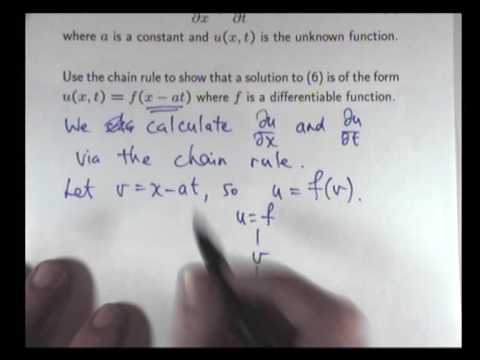 ∂x ∂t
where a is a constant and u(x, t) is the unknown function.
Use the chain rule to show that a solution to (6) is of the form
u(x, t) = f(x − at) where f is a differentiable function.
We calculate ∂u/∂x and ∂u/∂t
via the chain rule.
Let v = x − at, so u = f(v).
u = f
v